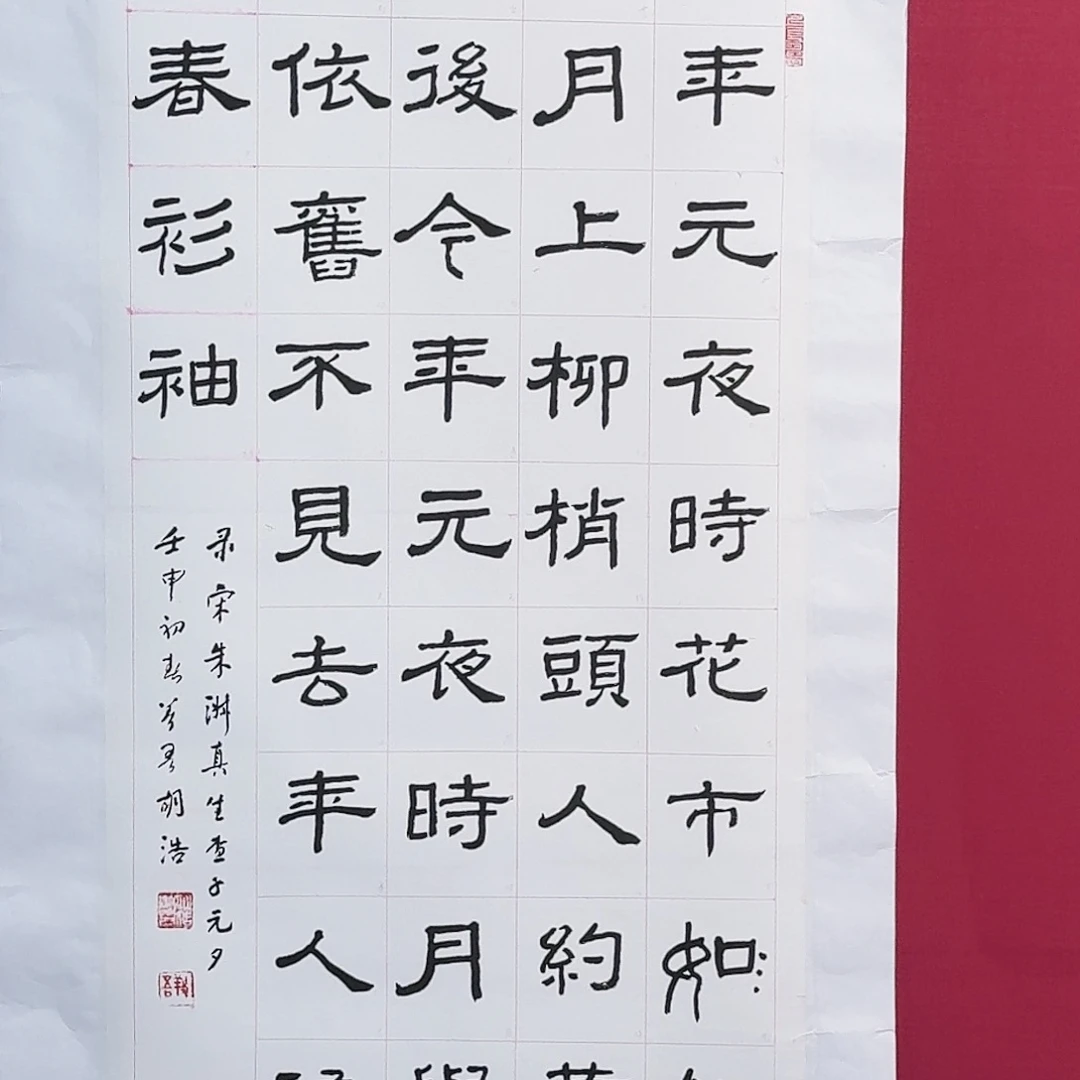 年元夜時花市如
月上柳梢頭人約
後今年元夜時月
依舊不見去年人
春衫袖
录宋朱淑真生查子元夕
壬申初春胡浩